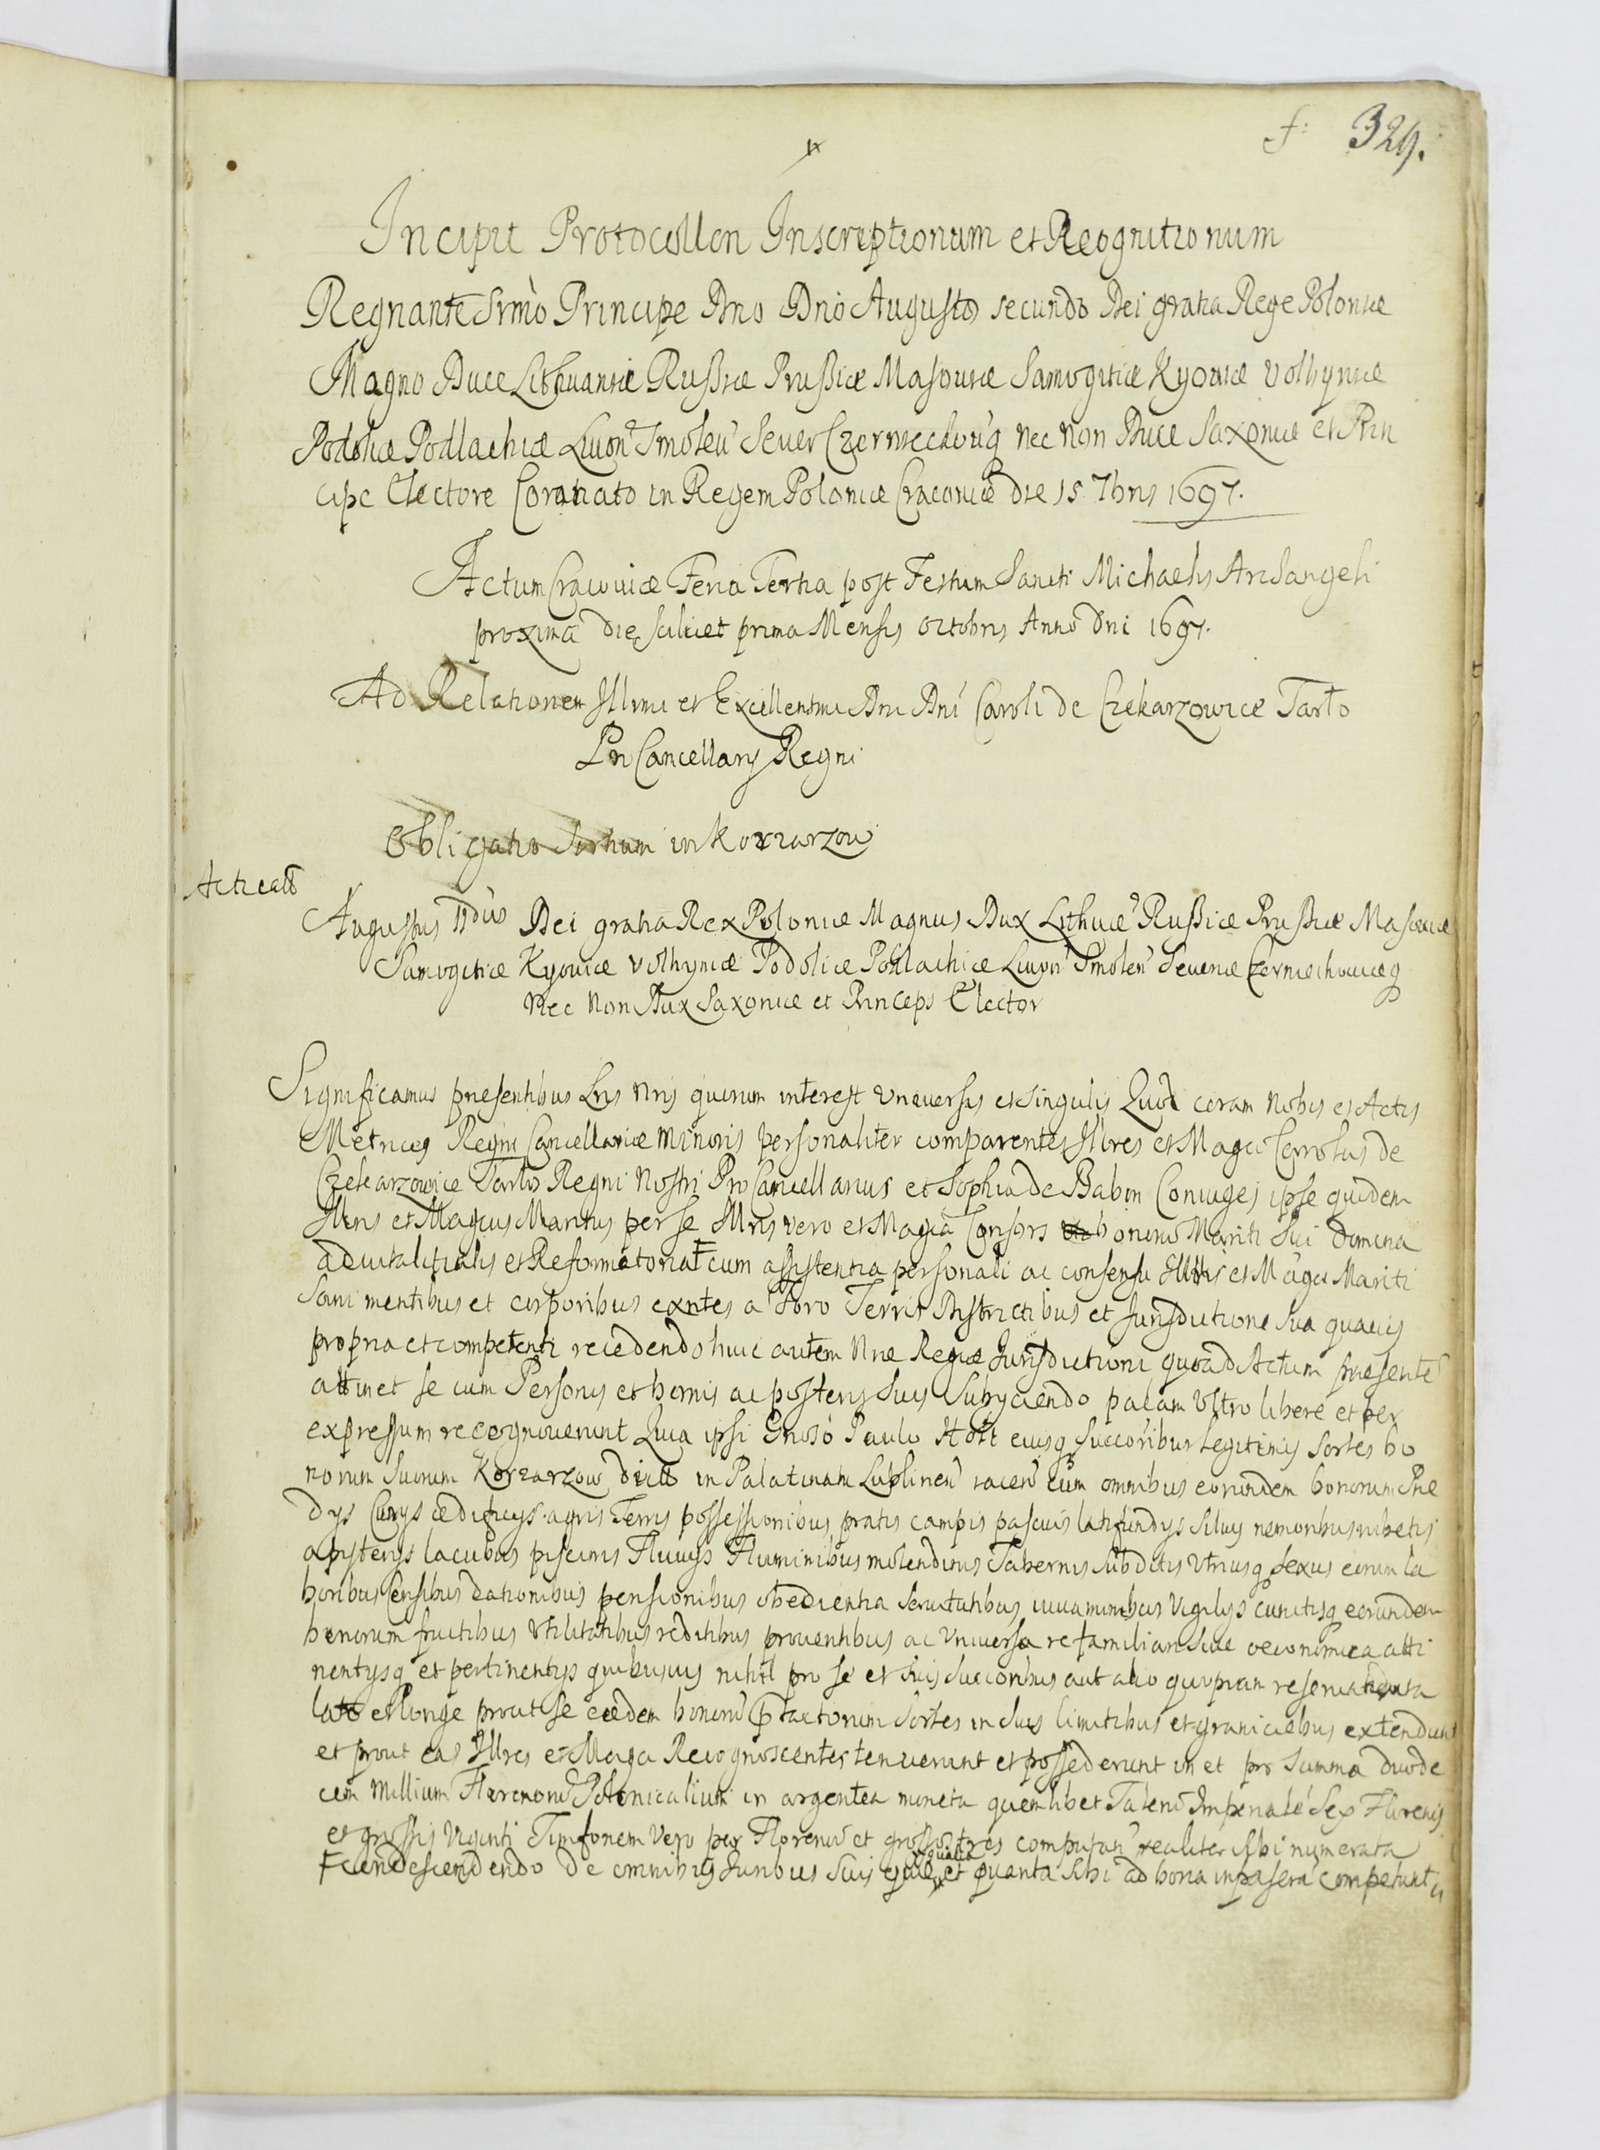 f: 329.
Incipit Protocollon Inscreptionum et Reognitionum
Regnante Srmo Principe Dno Dno Augusto secundo Dei gratia Rege Poloniæ
Magno Duce Lithuaniæ Russiæ Prussiæ Masouiæ Samogitiæ Kyouiæ Volhyniæ
Podoliæ Podlachiæ Liuon Smolen Seuer Czerniechouq nec non Duce Saxoniæ et Prin
cipe Electore Coronato in Regem Poloniæ Cracouiæ die 15 7bris 1697.
Actum Cracouiæ Feria Tertia post Festum Sancti Michaelis Archangeli
proxima die scilicet prima Mensis Octobris Anno Dni 1697.
Ad Relationem Illrmi et Excellentmi Dni Dni Caroli de Czekarzowice Tarło
Cancellarij Regni
Obligatio Sortium in Korzarzow
Augustus IIdus Dei gratia Rex Poloniæ Magnus Dux Lithuæ Russiæ Prussiæ Masouiæ
Samogitiæ Kyouiæ Volhyniæ Podoliæ Podlachiæ Liuon Smolen Seueriæ Czerniechouiæq
Nec Non Dux Saxoniæ et Princeps Elector
Significamus præsentibus Lris Nris quorum interest Vniuersis et singulis Quod coram Nobis et Actis
Metrices Regni Cancellariæ Minoris personaliter comparentes Illres et Magci Carolus de
Czekarzowice Tarło Regni Nostri Pro Cancellarius et Sophia de Babin Coniuges ipse quidem
Illris et Magcus Maritus per se Illris vero et Magca Consors bonorum Mariti Sui Domina
aduitalitialis et Reformatoria cum assistentia personali ac consensu Illris et Magci Mariti
Sani mentibus et corporibus exntes a Foro Terris Districtibus et Jurisdictione Sua quauis
propria et competenti recedendo huic autem Nræ Regiæ Jurisdictioni quoad Actum præsente
attinet se cum Personis et bonis ac posteris suis subyciendo palam Vltro libere et per
expressum recognouerunt Quia ipsi Gnoso Paulo eiusq succoribus legitimis sortes bo
norum suorum Korzarzow dictt in Palatinatu Lublinen iacen cum omnibus eorundem bonorum Præ
dys Curys ædificys agris Terris possessionibus pratis campis pascuis latifundys siluis nemoribus rubetis
apisterys lacubus piscinis Fluuys Fluminibus molendinis Tabernis subditis Vtriusq sexus eorum la
boribus Censibus dationibus pensionibus obedientia seruitutibus iuuaminibus Vigilys cunctisq eorundem
bonorum fructibus Vtilitatibus reditibus prouentibus ac Vniuersa re familiari siue oeconomica atti
nentysq et pertinentys quibusuis nihil pro se et suis succoribus aut alio quopiam reseruando ita
late et longe prout se eædem bonorum sortes in suis limitibus et graniciebus extendunt
et prout eas Illres et Magci Recognoscentes tenuerunt et possederunt in et pro summa duode
cem Millium Florenorum Polonicalium in argentea moneta quemlibet Talerum Imperialem sex Florenis
et grossis Viginti Timfonem vero per Florenum et grossos tres computan realiter sibi numerata
condescendendo de omnibus Juribus suis quæ et qualia et quanta sibi ad bona competunt